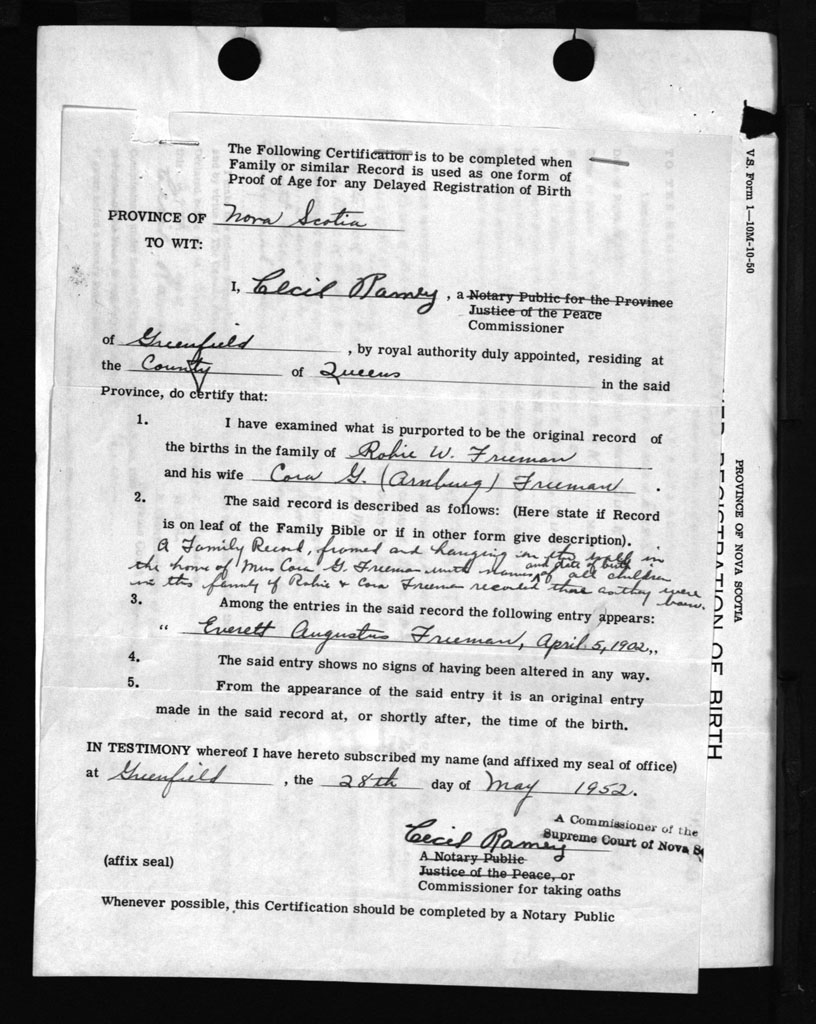 The Following Certification is to be completed when
Family or similar Record is used as one form of
Proof of Age for any Delayed Registration of Birth
PROVINCE OF Nova Scotia
TO WIT:
I, Cecil Ramey, a Notary Public for the Province
Justice of the Peace
Commissioner
of Greenfield, by royal authority duly appointed, residing at
the County of Queens in the said
Province, do certify that:
1. I have examined what is purported to be the original record of
the births in the family of Robie W. Freeman
and his wife Cora G. (Arnburg) Freeman.
2. The said record is described as follows: (Here state if Record
is on leaf of the Family Bible or if in other form give description).
A Family Record, framed and hanging on the wall in
the home of Mrs Cora G. Freeman with names and date of birth of all children
in this family of Robie & Cora Freeman recorded there as they were born.
3. Among the entries in the said record the following entry appears:
" Everett Augustus Freeman, April 5, 1902,,
4. The said entry shows no signs of having been altered in any way.
5. From the appearance of the said entry it is an original entry
made in the said record at, or shortly after, the time of the birth.
IN TESTIMONY whereof I have hereto subscribed my name (and affixed my seal of office)
at Greenfield, the 28th day of May 1952.
A Commissioner of the
Supreme Court of Nova S
Cecil Ramey
(affix seal)
A Notary Public
Justice of the Peace, or
Commissioner for taking oaths
Whenever possible, this Certification should be completed by a Notary Public
V.S. Form 1—10M-10-50
PROVINCE OF NOVA SCOTIA
REGISTRATION OF BIRTH